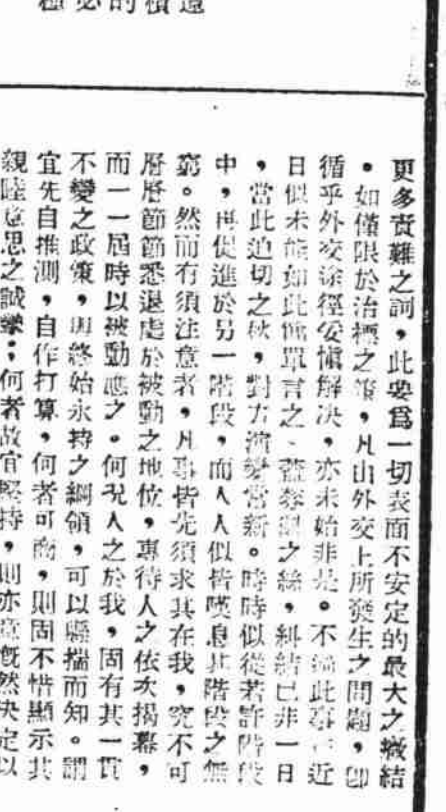 遠
積
的
必
極
更多責難之詞，此要爲一切表面不安定的最大之癥結
。如僅限於治標之策，凡由外交上所發生之問題，卽
循乎外交途徑妥愼解決，亦未始非是。不過此事在近
日似未能如此簡單言之、蓋棼亂之絲，糾結已非一日
，當此迫切之秋，對方演變當新。時時似從若許階段
中，再促進於另一階段，而人人似皆嘆息其階段之無
窮。然而有須注意者，凡事皆先須求其在我，究不可
層層節節悉退處於被動之地位，專待人之依次揭幕，
而一一屆時以被動應之。何況人之於我，固有其一貫
不變之政策，與終始永持之綱領，可以懸揣而知。謂
宜先自推測，自作打算，何者可商，則固不惜顯示其
親睦意思之誠摯；何者故宜堅持，則亦當慨然決定以